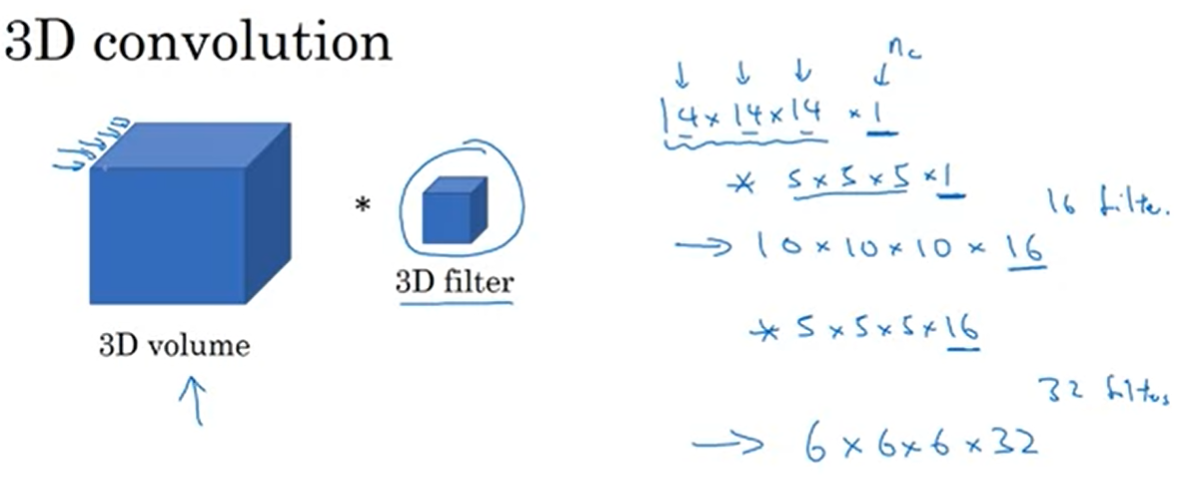 3D convolution
*
3D filter
3D volume
n_c
14 × 14 × 14 × 1
* 5 × 5 × 5 × 1
16 filte.
→ 10 × 10 × 10 × 16
* 5 × 5 × 5 × 16
32 filters
→ 6 × 6 × 6 × 32